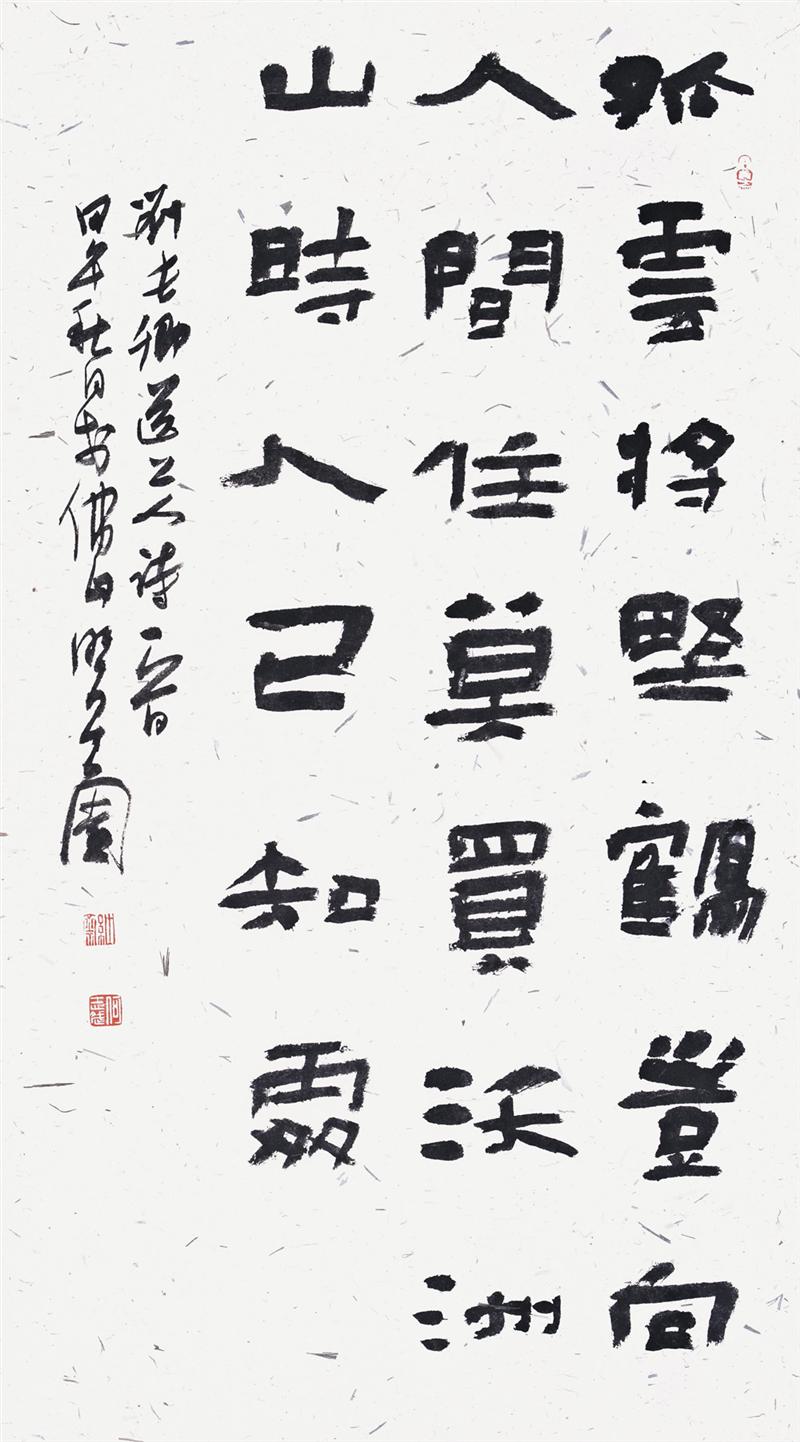 孤雲將野鶴豈向
人間住莫買沃洲
山時人已知處
劉長卿送上人詩一首
甲午秋日於佛